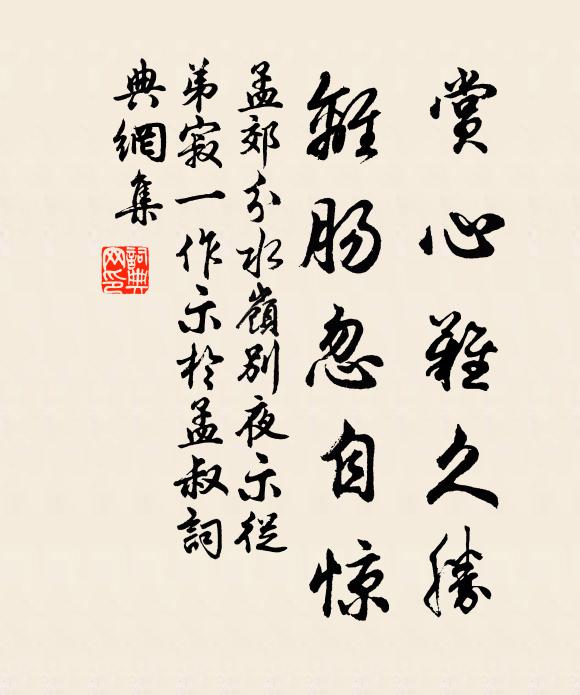 賞心難久勝
離腸忽自惊
孟郊分水嶺別夜示從
弟寂一作示於孟叔詞
典網集
詞典
网印